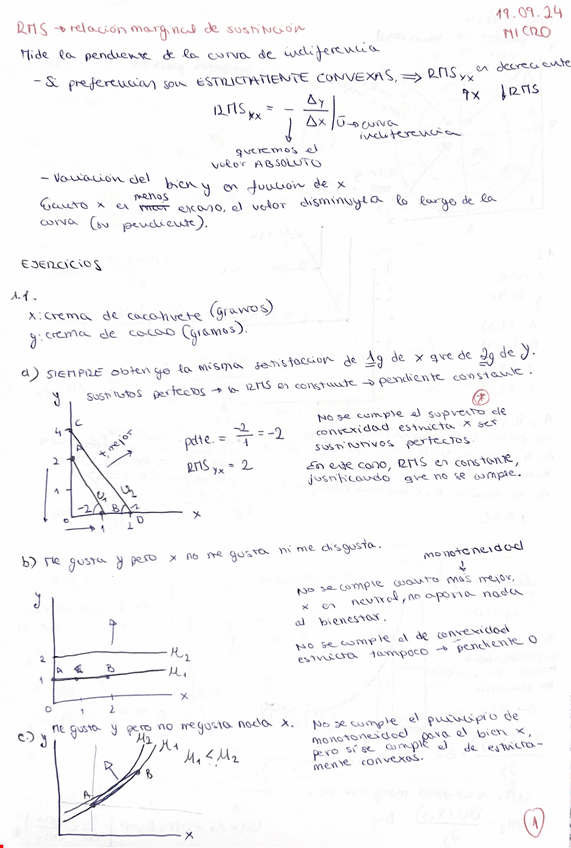 19.09.24
RMS → relación marginal de sustitución
MICRO
Mide la pendiente de la curva de indiferencia
- Si preferencias son ESTRICTAMENTE CONVEXAS, ⇒ RMS yx es decreciente
↑x ↓RMS
RMS yx = - Δy/Δx | Ū → curva indiferencia
queremos el
valor ABSOLUTO
- Variación del bien y en función de x
Cuanto x es menos escaso, el valor disminuye a lo largo de la
curva (su pendiente).
EJERCICIOS
1.1.
x: crema de cacahuete (gramos)
y: crema de cacao (gramos).
a) SIEMPRE obtengo la misma satisfacción de 1g de x que de 2g de y.
sustitutos perfectos → la RMS es constante → pendiente constante.
y
4 C
A
2
1
0 1 B 2 D x
-2 U1 U2 -2
x, mejor
pdte. = -2/1 = -2
RMS yx = 2
*
No se cumple el supuesto de
convexidad estricta x ser
sustitutivos perfectos.
En este caso, RMS es constante,
justificando que no se cumple.
b) Me gusta y pero x no me gusta ni me disgusta.
monotoneidad
↓
No se cumple cuanto más mejor,
x es neutral, no aporta nada
al bienestar.
No se cumple el de convexidad
estricta tampoco → pendiente 0
y
2 M2
A B
1 M1
0 1 2 x
c) Me gusta y pero no me gusta nada x.
y
M2 M1
M1 < M2
A B
x
No se cumple el principio de
monotoneidad para el bien x,
pero sí se cumple el de estricta-
mente convexas.
1